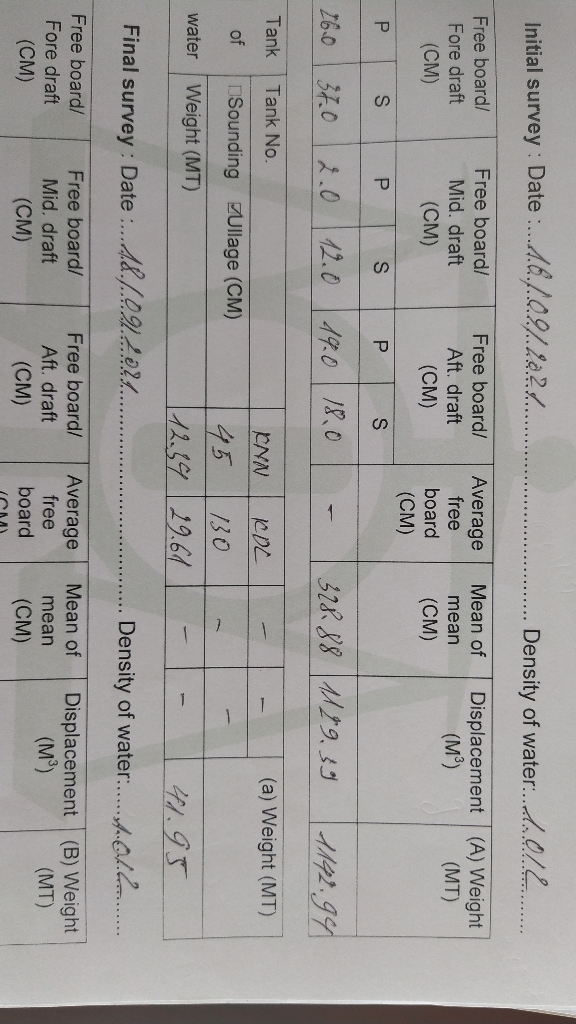 Initial survey : Date :....16/09/2021.......... Density of water:...1.012........
Free board/ Fore draft (CM) Free board/ Mid. draft (CM) Free board/ Aft. draft (CM) Average free board (CM) Mean of mean (CM) Displacement (M³) (A) Weight (MT)
P S P S P S
26.0 37.0 2.0 12.0 19.0 18.0 - 328.88 1129.39 1142.94
Tank of water Tank No. RNN RDC - - (a) Weight (MT)
☐Sounding ☑Ullage (CM) 45 130 - -
Weight (MT) 12.34 29.61 - - 41.95
Final survey : Date :....18/09/2021.......... Density of water:......1.012........
Free board/ Fore draft (CM) Free board/ Mid. draft (CM) Free board/ Aft. draft (CM) Average free board (CM) Mean of mean (CM) Displacement (M³) (B) Weight (MT)